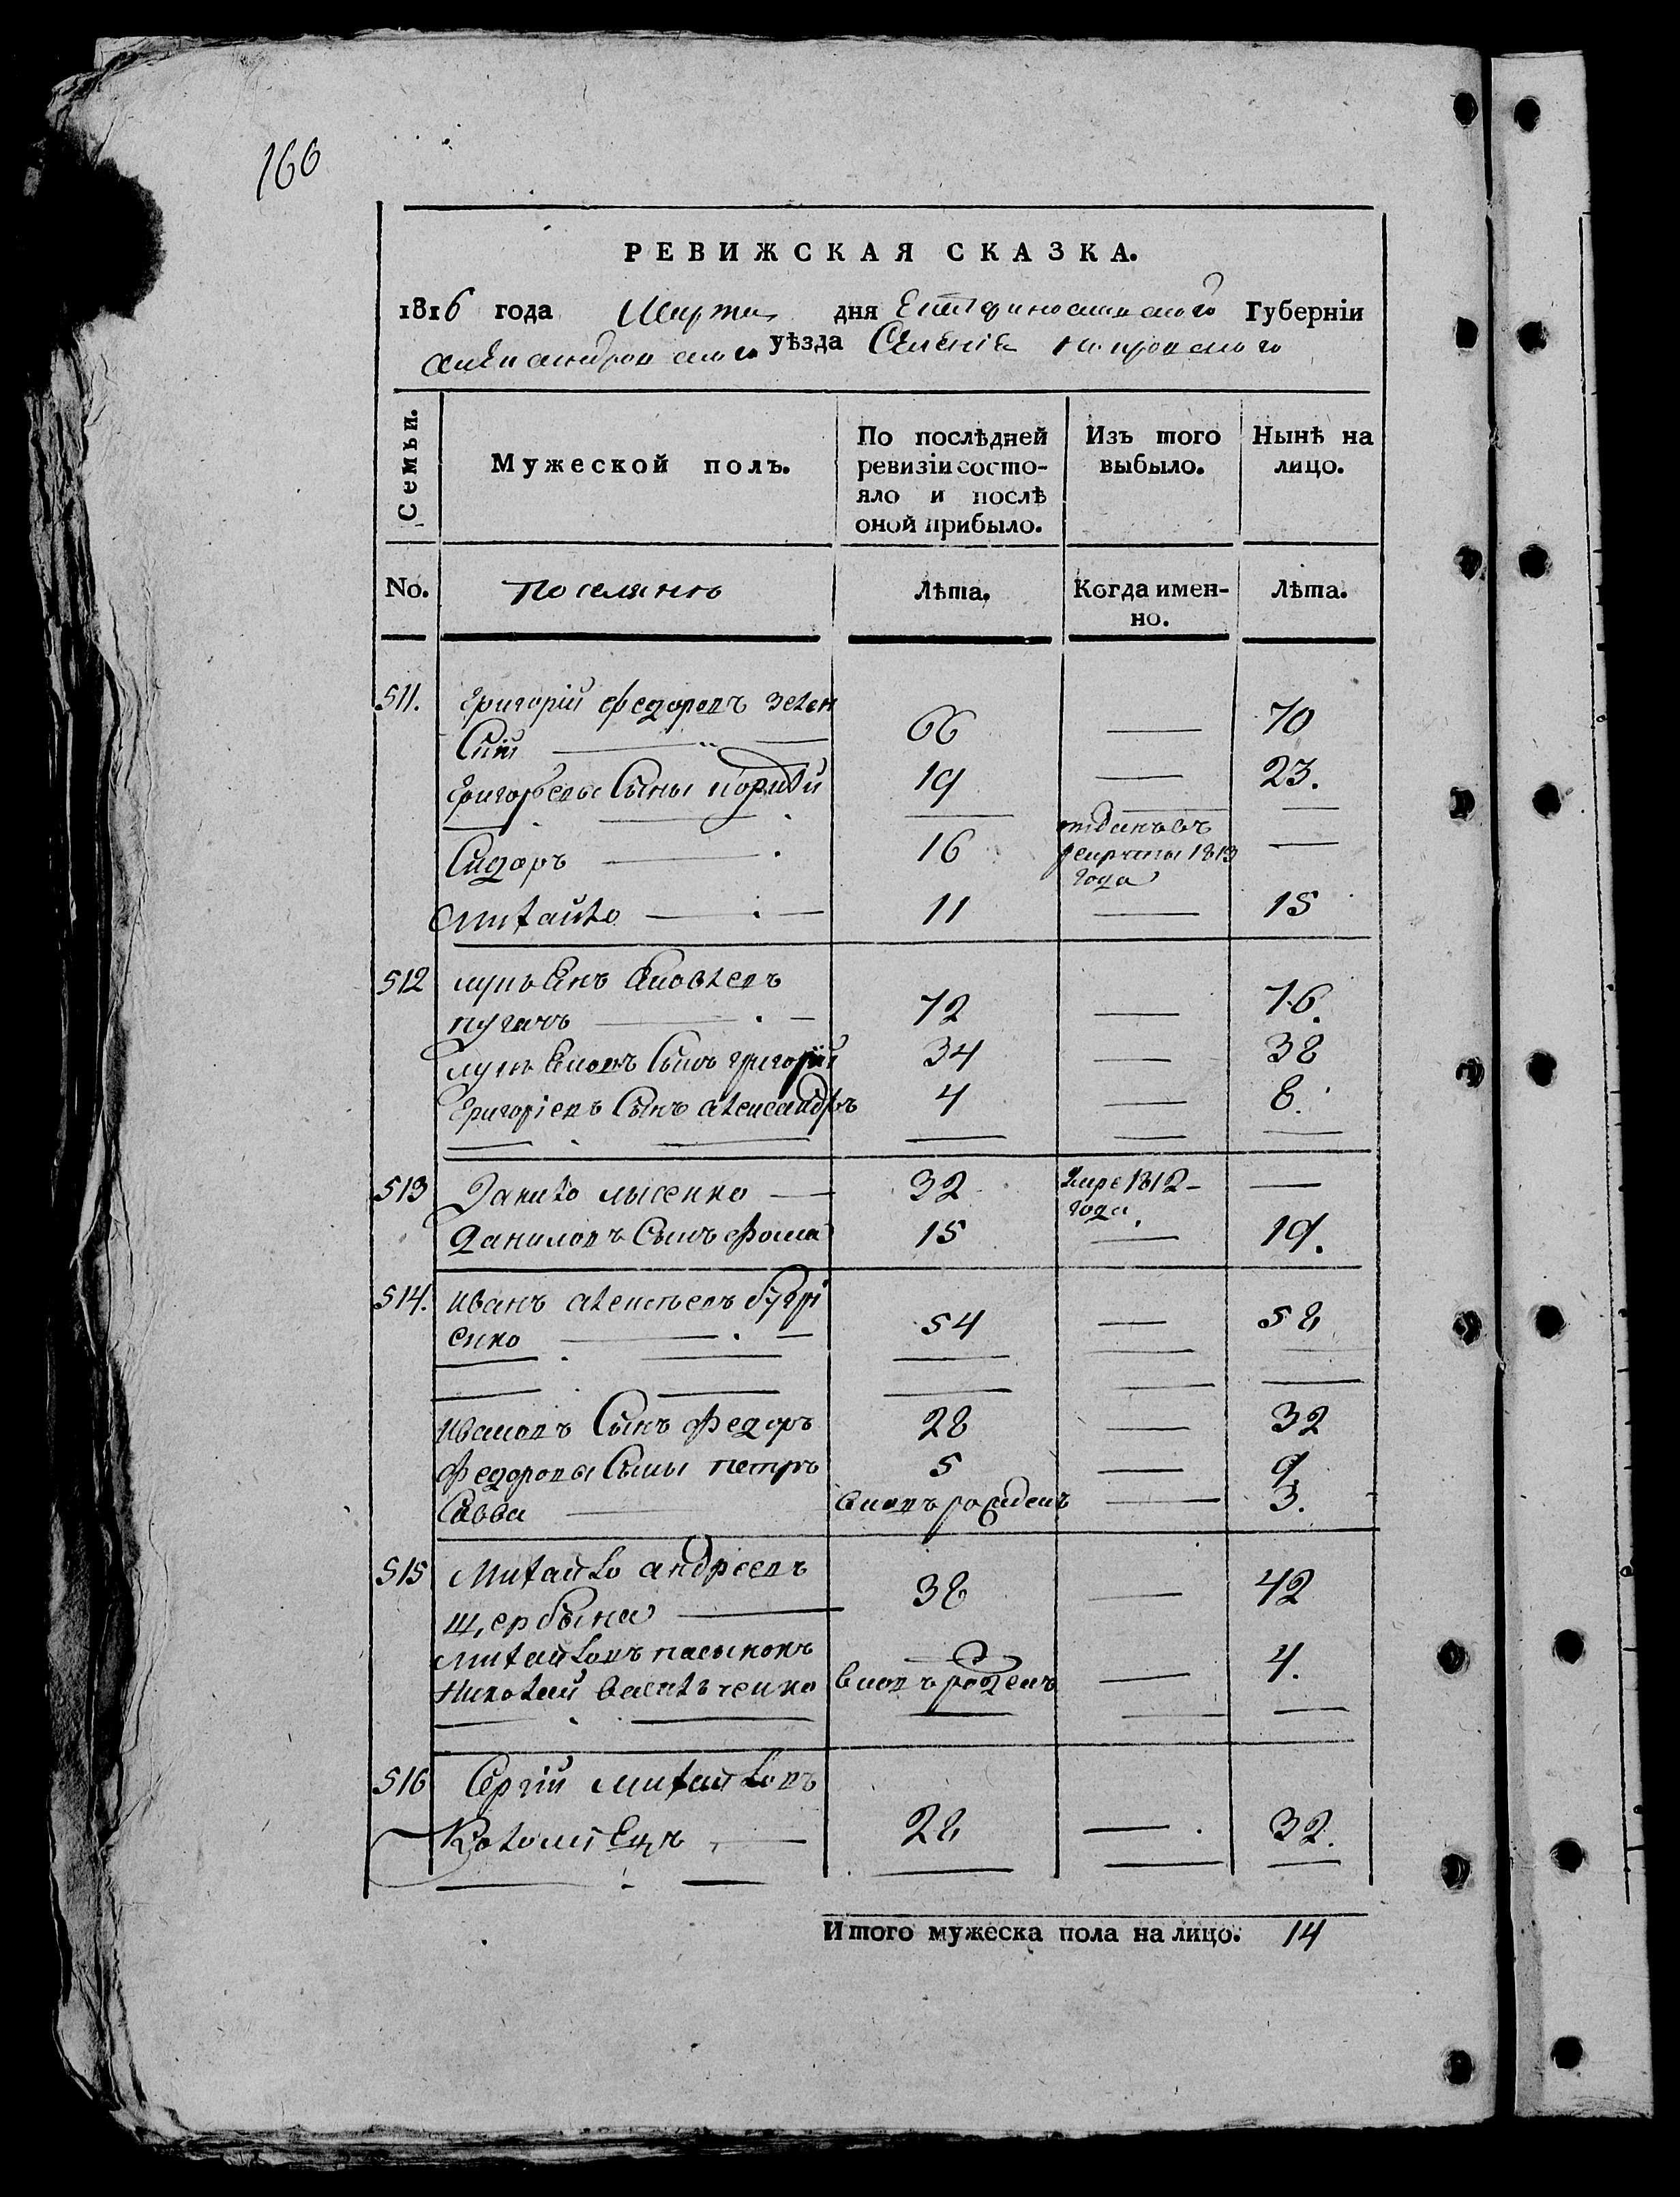 166
РЕВИЖСКАЯ СКАЗКА.
1816 года Марта дня Екатеринославской Губерніи
Александровского уѣзда Селенія Покровского
Семьи.
Мужеской полъ.
По послѣдней
ревизіи состо-
яло и послѣ
оной прибыло.
Изъ того
выбыло.
Нынѣ на
лицо.
No. Поселянъ Лѣта. Когда имен-
но. Лѣта.
511. Григорій Федоровъ Зелен
Скій 66 70
Григорьевы Сыны 19 23.
отданъ въ
Сидоръ 16 рекруты 1813
года
Михайло 11 15
512 Лукьянъ Яковлевъ
Пугачъ 72 76.
Лукьяновъ Сынъ Григорій 34 38
Григоріевъ Сынъ Александръ 4 8.
513 Данило Лысенко 32 Умре 1812
года
Даниловъ Сынъ Фома 15 19.
514. Иванъ Алексѣевъ Бугрі
енко 54 58
Ивановъ Сынъ Федоръ 28 32
Федоровы Сыны Петръ 5 9
Савва вновь рожденъ 3.
515 Михайло Андреевъ
Щербына 38 42
Михайловъ пасынокъ
Николай Васильченко вновь рожденъ 4.
516 Сергій Михайловъ
Коломіецъ 28 32.
Итого мужеска пола на лицо: 14